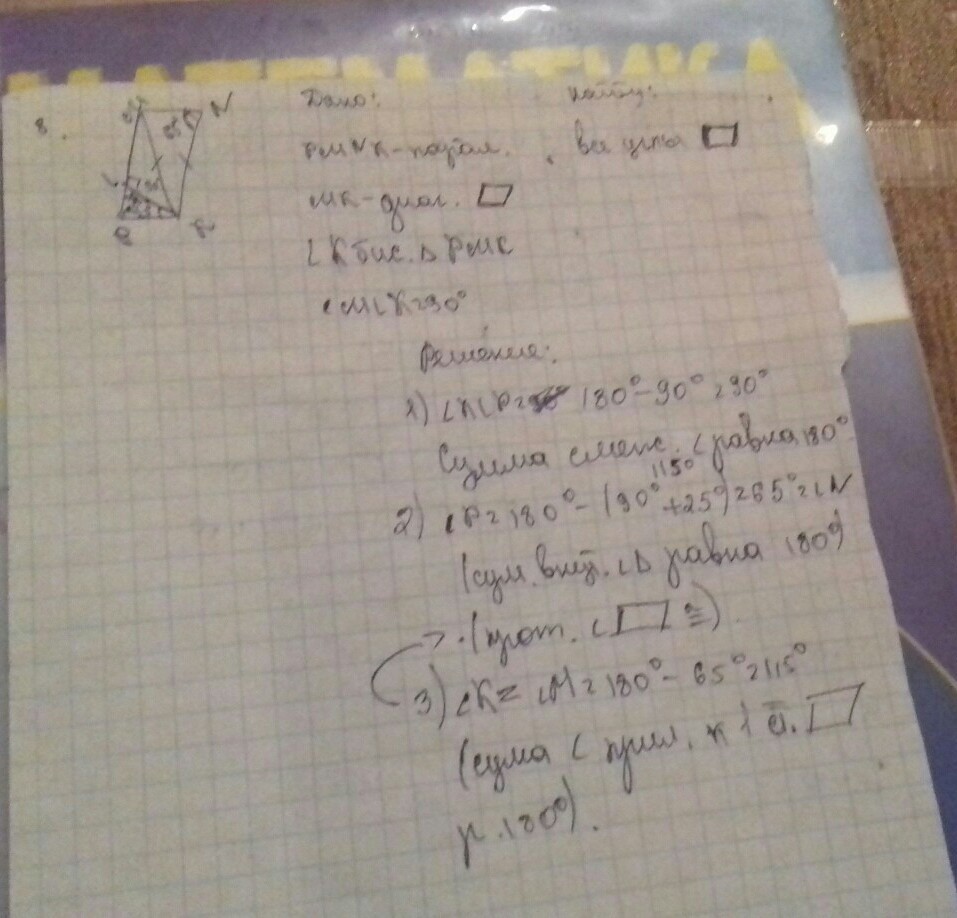 МАТЕМАТИКА
8.
N
Дано: Найти:
PMNK-парал. все углы ▱
MK-диаг. ▱
LK бис. Δ PMK
∠MLK=90°
Решение:
1) ∠KLP= 180°-90°=90°
Сумма смеж. ∠ равна 180°
115°
2) ∠P=180°-(90°+25°)=65°=∠N
(сум. внут. ∠Δ равна 180°)
(прот. ∠ ▱ ≅).
3) ∠K= ∠M=180°-65°=115°
(сума ∠ прил. к 1 ст. ▱
р. 180°).